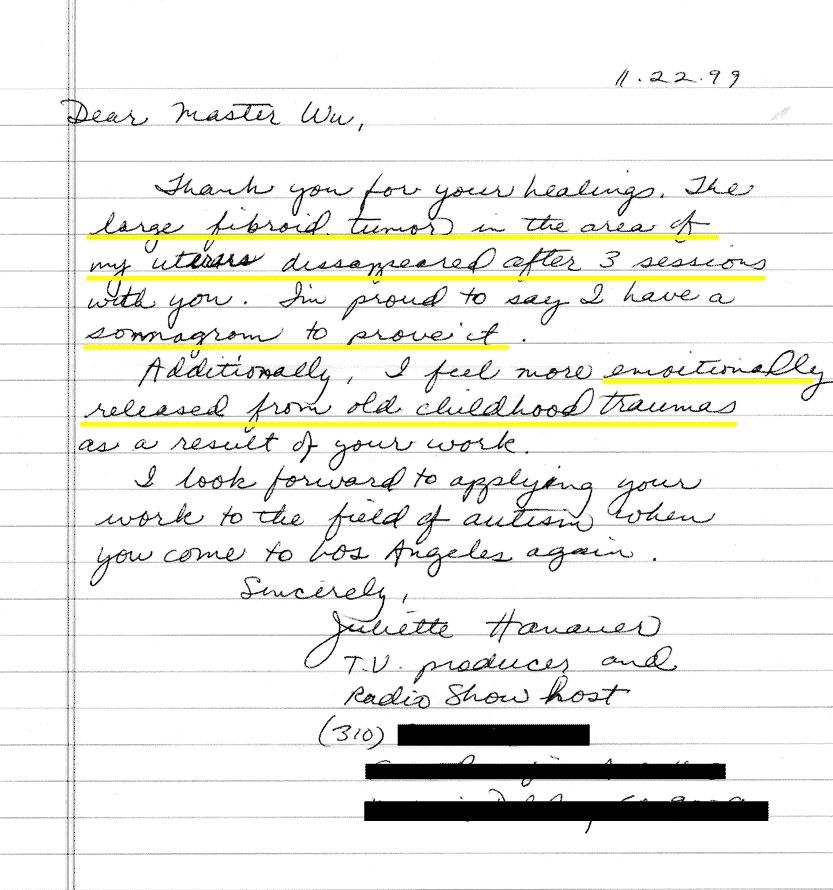 11.22.99
Dear Master Wu,
Thank you for your healings. The
large fibroid tumor in the area of
my uterus dissappeared after 3 sessions
with you. I'm proud to say I have a
sonnagram to prove it.
Additionally, I feel more emoitionally
released from old childhood traumas
as a result of your work.
I look forward to applying your
work to the field of autism when
you come to Los Angeles again.
Sincerely,
Juliette Hanauer
T.V. producer and
Radio Show host
(310)